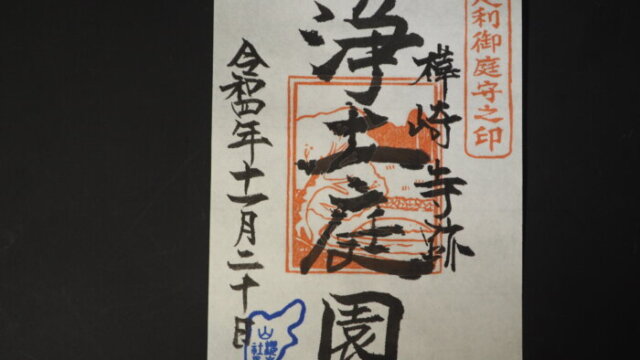 足利御庭守之印
樺崎寺跡
浄土庭園
令和四年十一月二十日